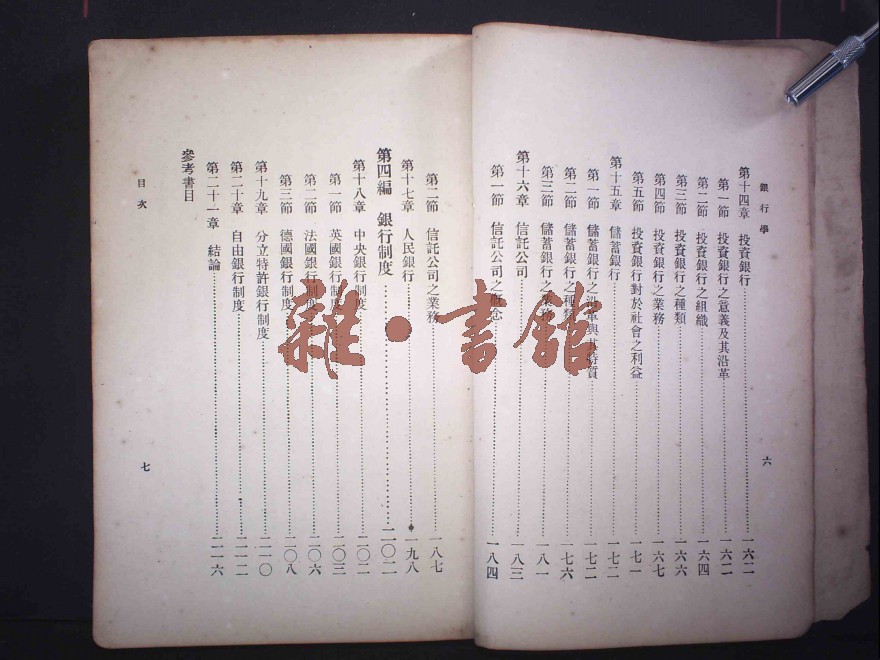 銀行學
第十四章 投資銀行 一六二
第一節 投資銀行之意義及其沿革 一六二
第二節 投資銀行之組織 一六四
第三節 投資銀行之種類 一六六
第四節 投資銀行之業務 一六七
第五節 投資銀行對於社會之利益 一七一
第十五章 儲蓄銀行 一七二
第一節 儲蓄銀行之沿革與其特質 一七二
第二節 儲蓄銀行之種類 一七六
第三節 儲蓄銀行之業務 一八一
第十六章 信託公司 一八三
第一節 信託公司之概念 一八四
六
第二節 信託公司之業務 一八七
第十七章 人民銀行 一九八
第四編 銀行制度 二〇二
第十八章 中央銀行制度 二〇二
第一節 英國銀行制度 二〇三
第二節 法國銀行制度 二〇六
第三節 德國銀行制度 二〇八
第十九章 分立特許銀行制度 二一〇
第二十章 自由銀行制度 二一二
第二十一章 結論 二一六
參考書目
目次
七
雜·書館